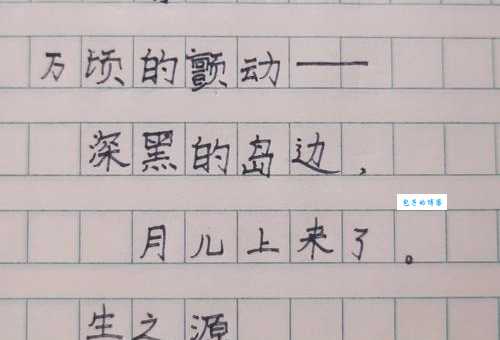 万顷的颤动——
深黑的岛边，
月儿上来了。
生之源